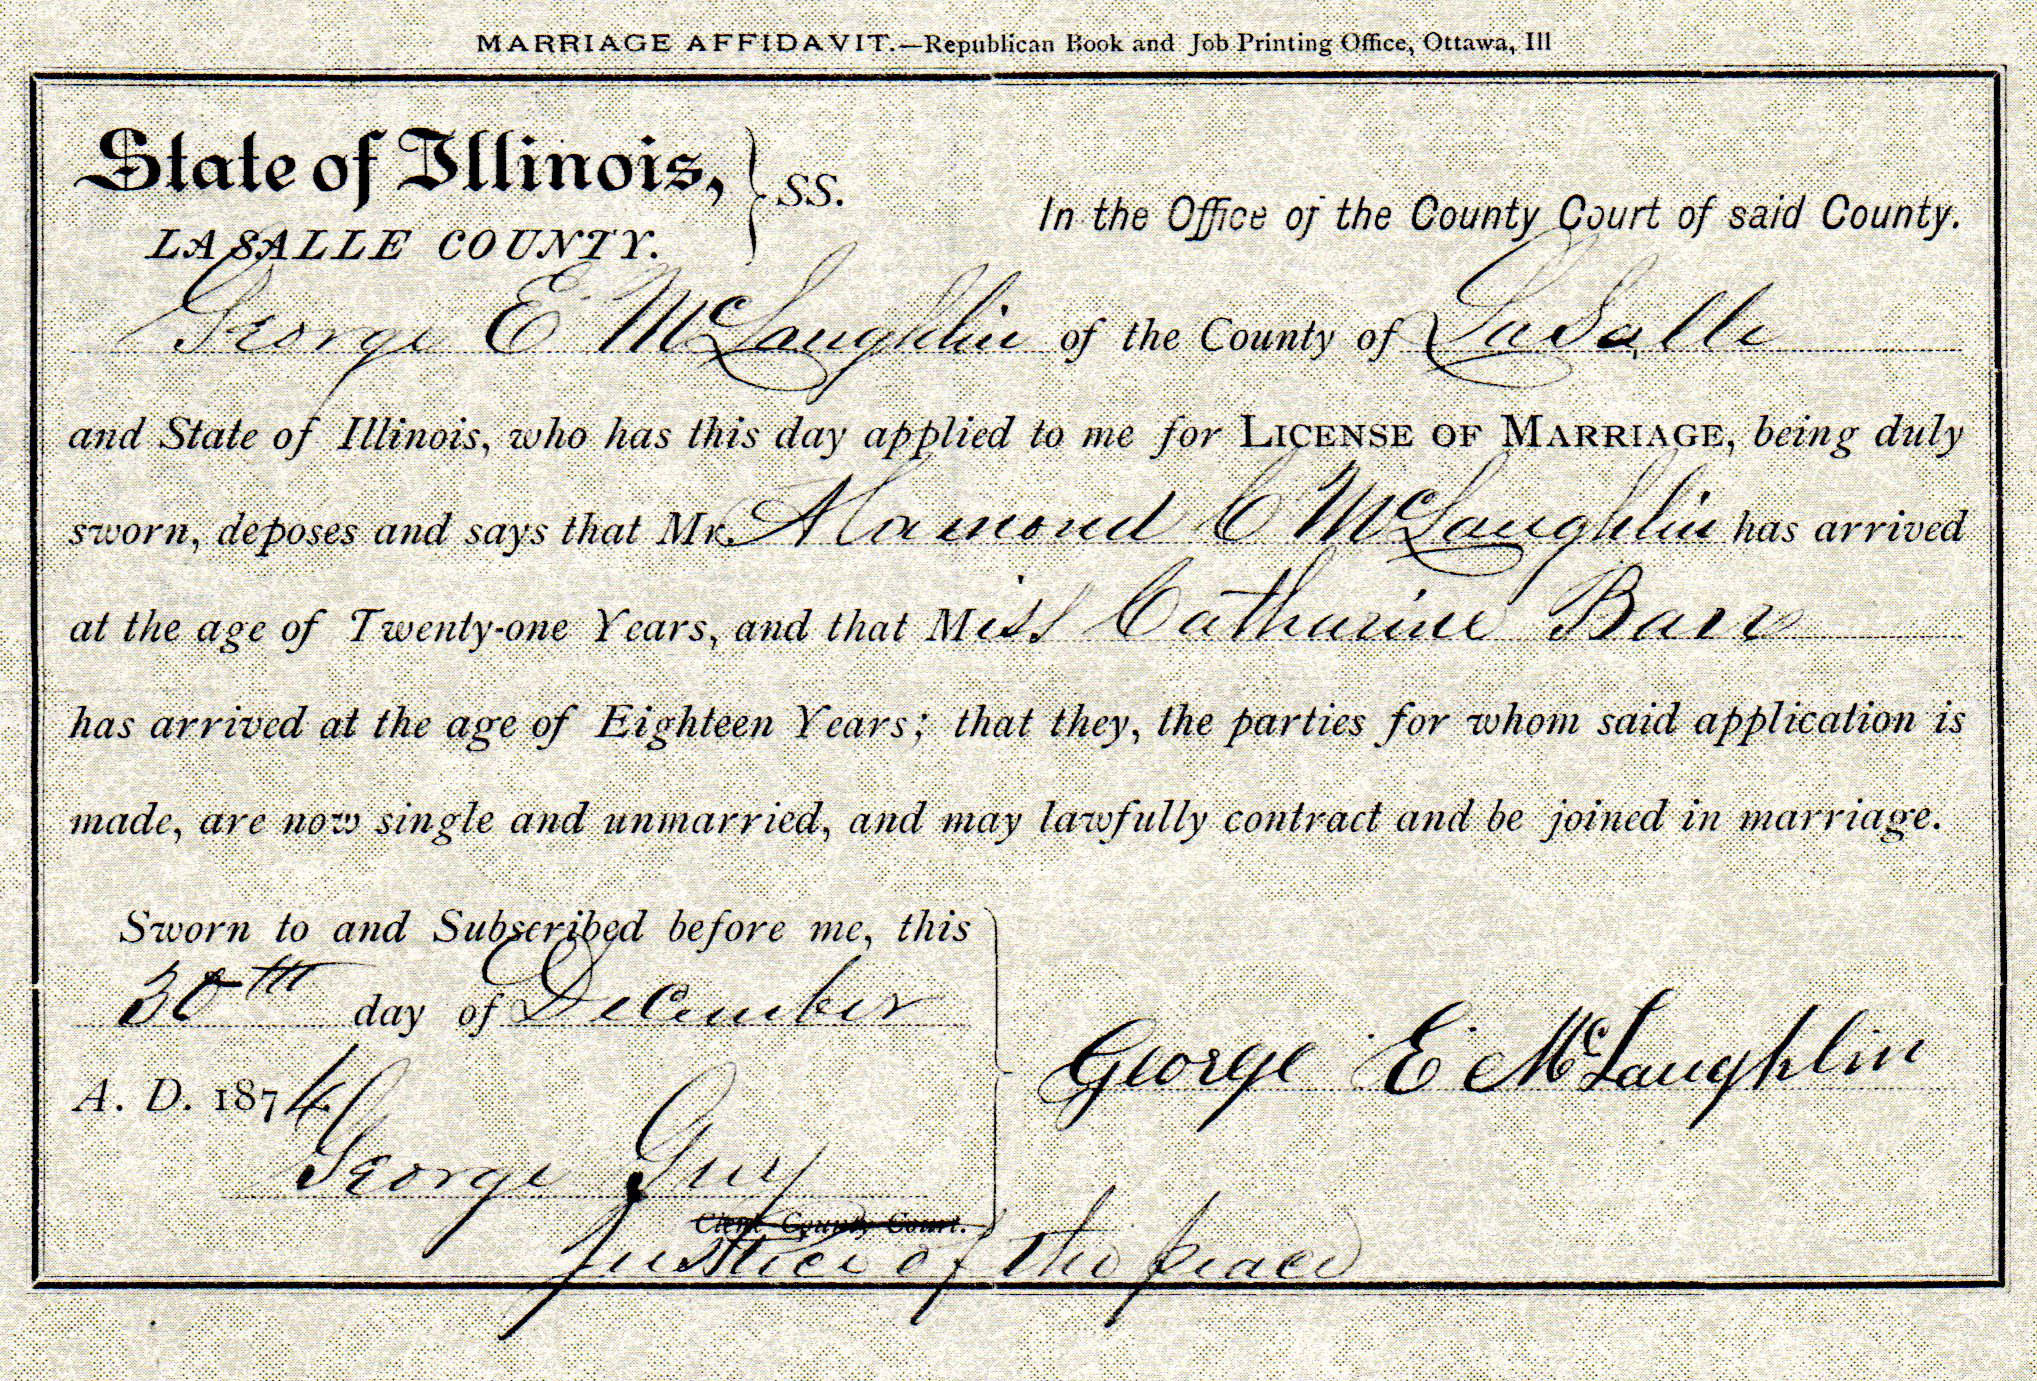 MARRIAGE AFFIDAVIT.—Republican Book and Job Printing Office, Ottawa, Ill
State of Illinois, } SS.
LASALLE COUNTY.
In the Office of the County Court of said County.
George E McLaughlin of the County of LaSalle
and State of Illinois, who has this day applied to me for LICENSE OF MARRIAGE, being duly
sworn, deposes and says that Mr. Alamond C McLaughlin has arrived
at the age of Twenty-one Years, and that Miss Catharine Barr
has arrived at the age of Eighteen Years; that they, the parties for whom said application is
made, are now single and unmarried, and may lawfully contract and be joined in marriage.
Sworn to and Subscribed before me, this
30th day of December
A. D. 1874
George E McLaughlin
George Guy
Clerk County Court.
Justice of the peace